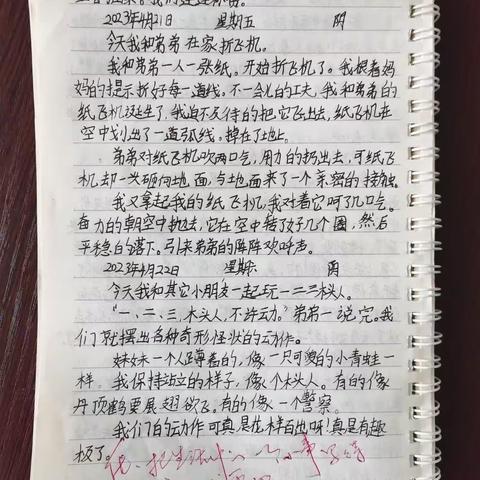 2023年4月21日 星期五 阴
今天我和弟弟在家折飞机。
我和弟弟一人一张纸。开始折飞机了。我根着妈
妈的提示折好每一道线。不一会儿的工夫，我和弟弟的
纸飞机诞生了，我迫不及待的把它飞出去，纸飞机在
空中划出了一道弧线。掉在了地上。
弟弟对纸飞机吹两口气，用力的扔出去，可纸飞
机却一头砸向地面，与地面来了一个亲密的接触。
我又拿起我的纸飞机，我对着它呵了几口气。
奋力的朝空中抛去，它在空中转了好几个圈，然后
平稳的落下。引来弟弟的阵阵欢呼声。
2023年4月22日 星期
今天我和其它小朋友一起玩一二三木头人。
“一、二、三，木头人，不许动。”弟弟一说完。我
们就摆出各种奇形怪状的动作。
妹妹一个人蹲着的，像一只可爱的小青蛙一
样。我保持站立的样子，像个木头人。有的像
丹顶鹤要展翅欲飞。有的像一个警察。
我们的动作可真是花样百出呀！真是有趣
极了。